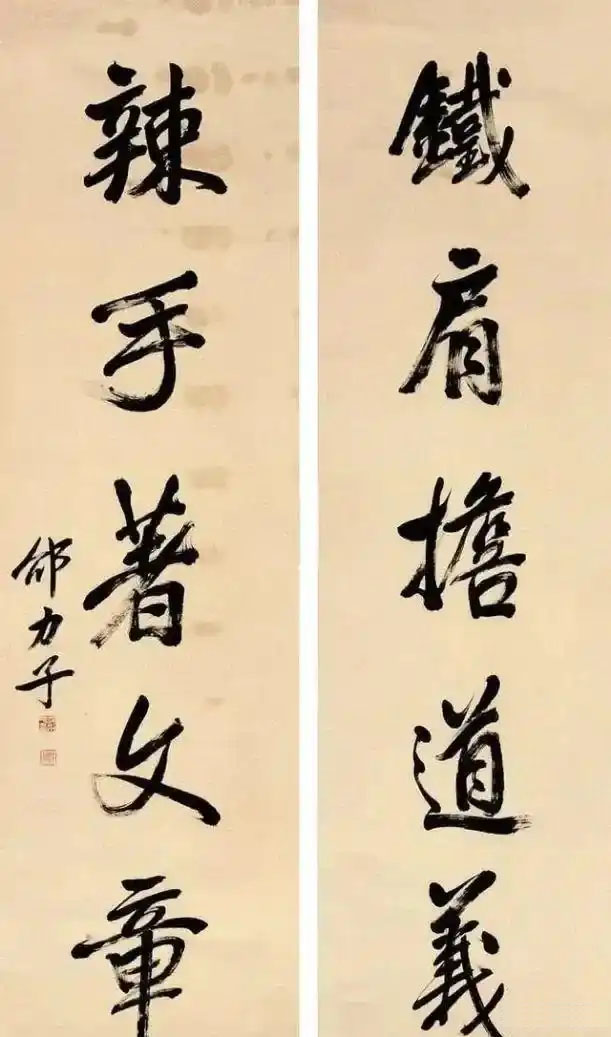 鐵肩擔道義
辣手著文章
邵力子